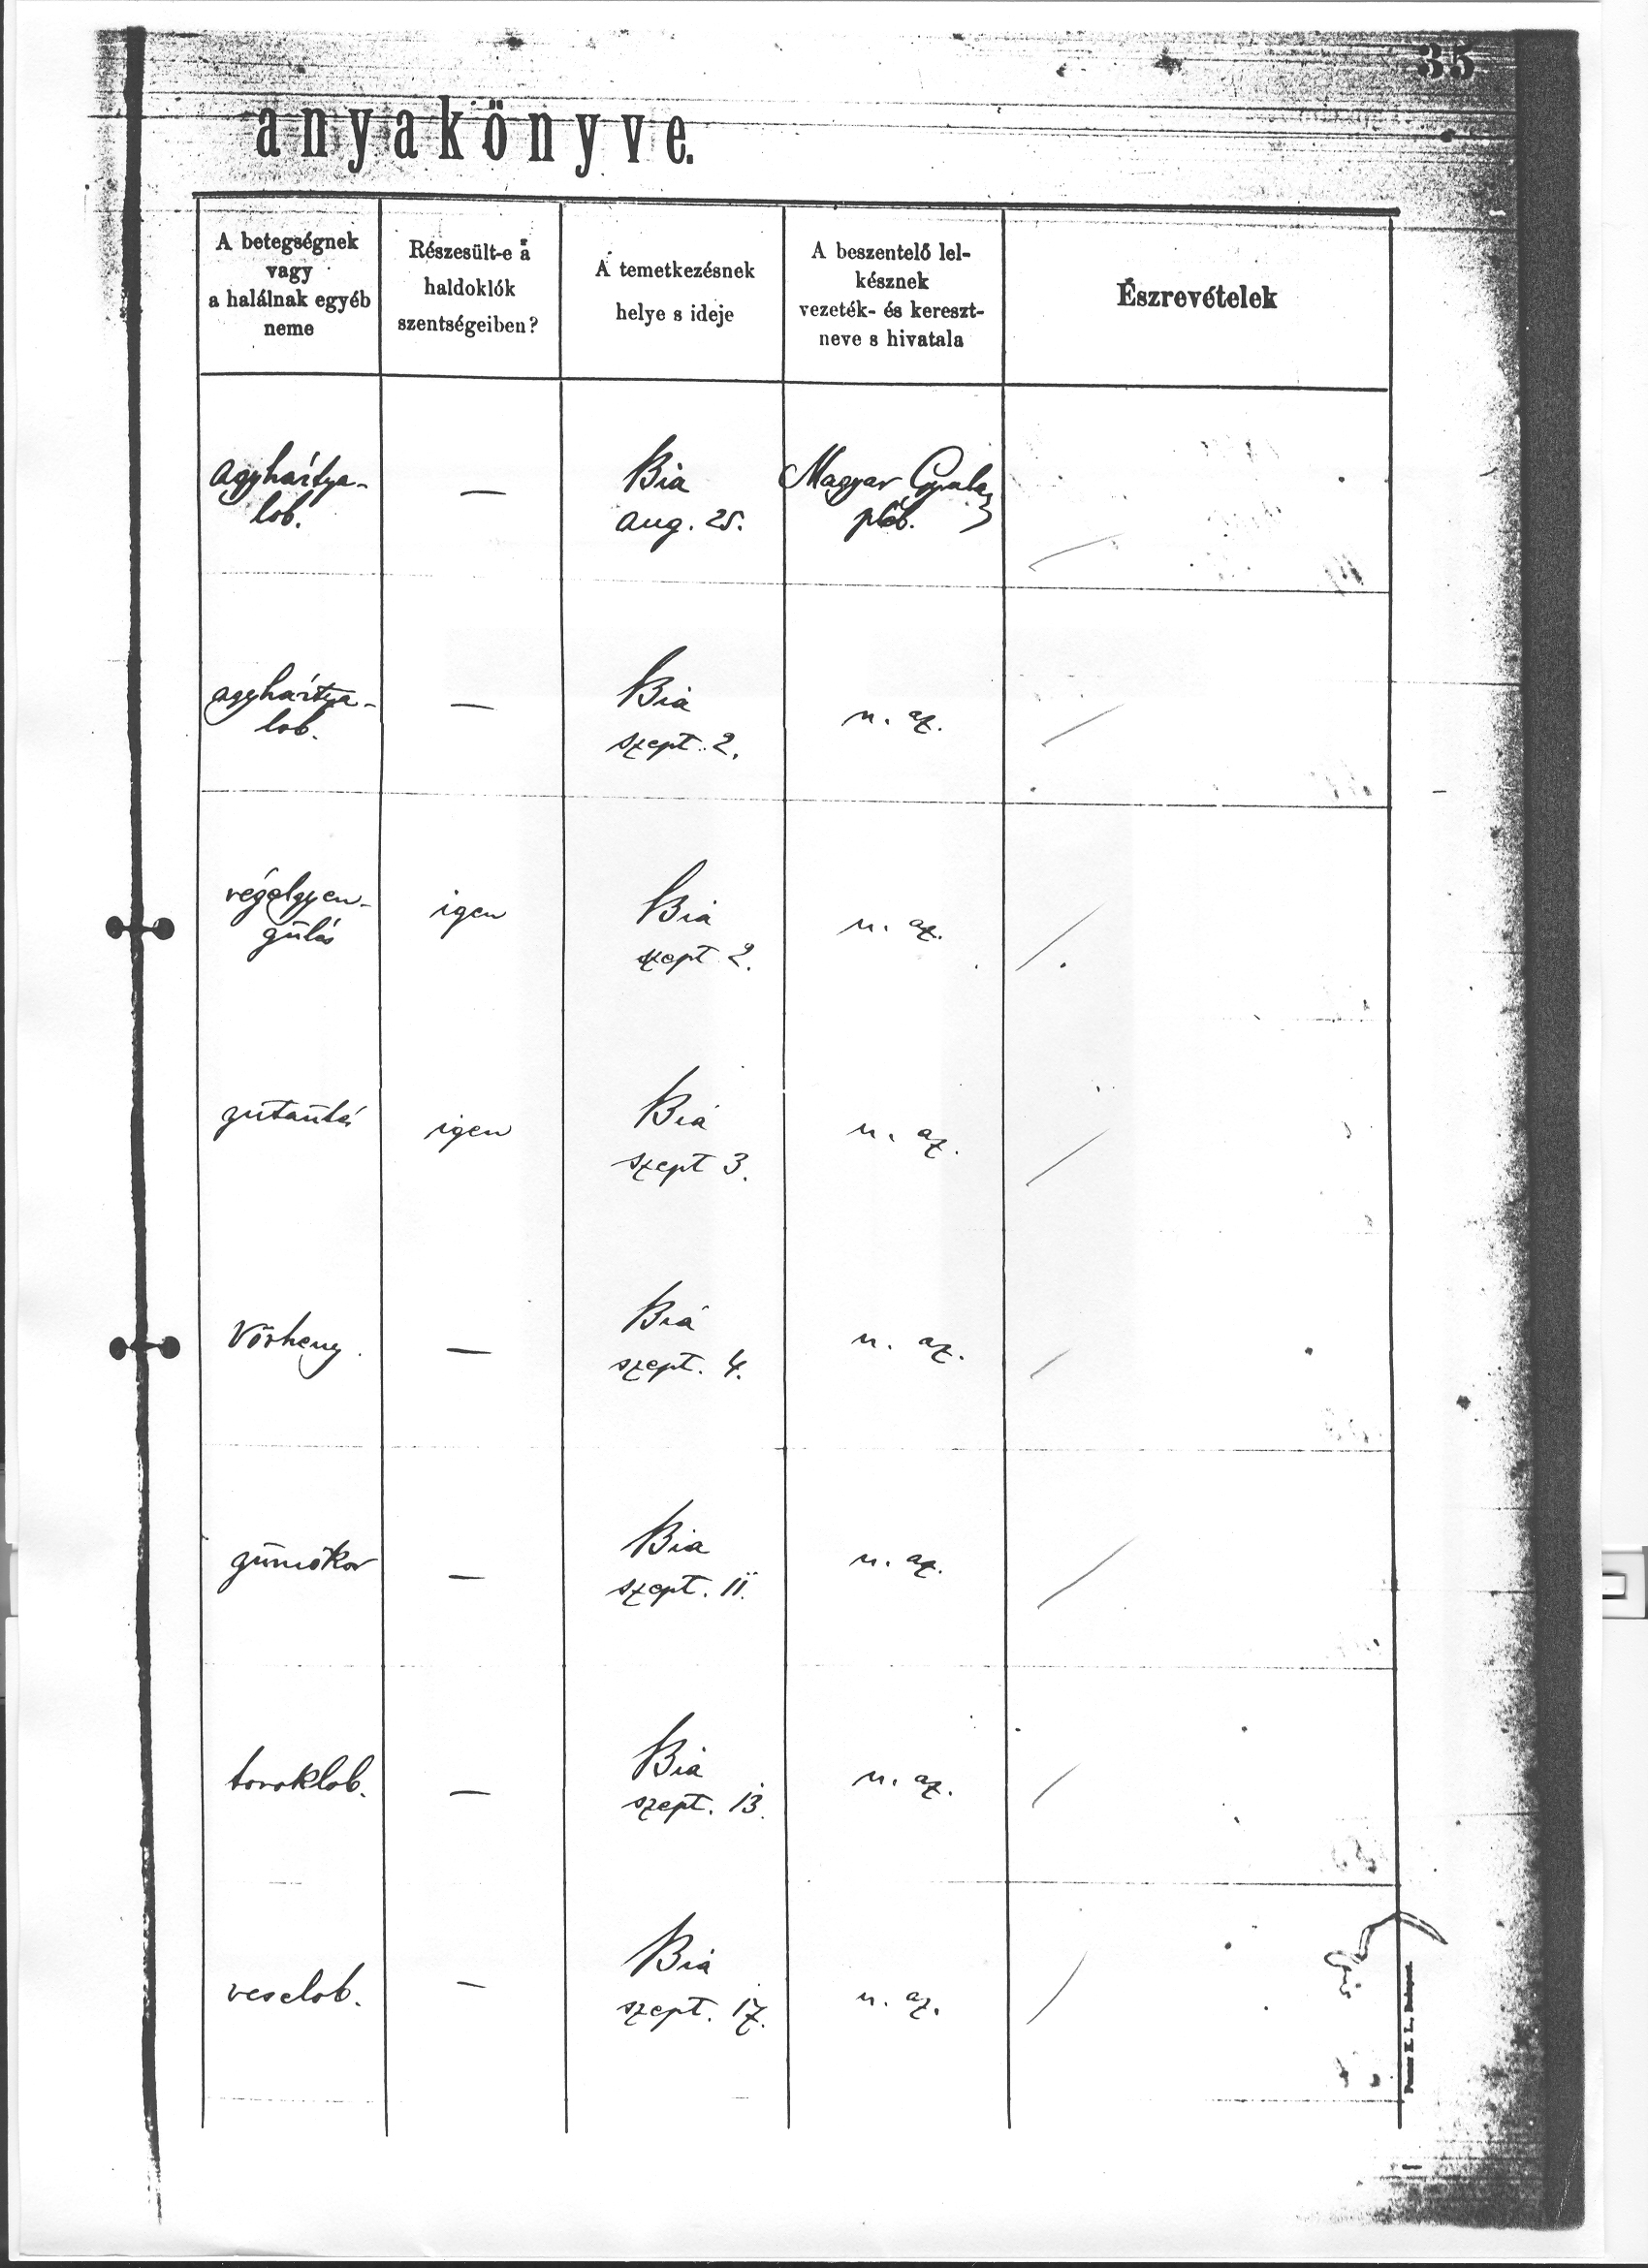 35
anyakönyve.
A betegségnek
vagy
a halálnak egyéb
neme
Részesült-e a
haldoklók
szentségeiben?
A temetkezésnek
helye s ideje
A beszentelő lel-
késznek
vezeték- és kereszt-
neve s hivatala
Észrevételek
agyhártya-
lob.
—
Bia
aug. 25.
Magyar Gyula
pléb.
agyhártya-
lob.
—
Bia
szept. 2.
u. az.
végelgyen-
gülés
igen
Bia
szept 2.
u. az.
igen
Bia
szept 3.
u. az.
Vörheny.
—
Bia
szept. 4.
u. az.
gümőkor
—
Bia
szept. 11.
u. az.
toroklob.
—
Bia
szept. 13.
u. az.
veselob.
—
Bia
szept. 17.
u. az.